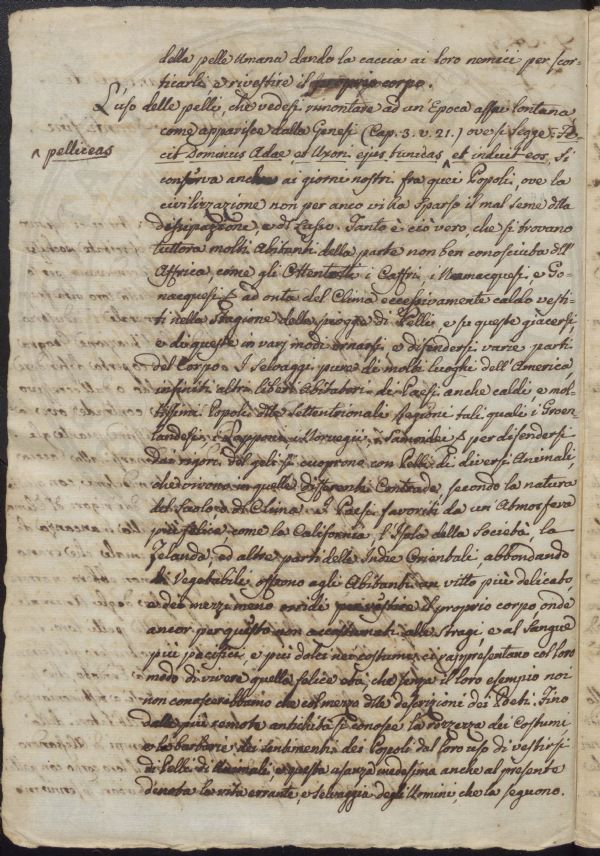 della pelle Umana dando la caccia ai loro nemici per scor-
ticarli e rivestire il proprio corpo.
L'uso delle pelli, che vedesi rimontare ad un'Epoca assai lontana
come apparisce dalla Genesi (Cap. 3. v. 21.) ove si legge: Fe-
cit Dominus Adae, et Uxori ejus tunicas ^ et induit eos, si
^ pelliceas
conserva anche ai giorni nostri fra quei Popoli, ove la
civilizzazione non per anco vi ha sparso il mal seme della
dissipazione, e del Lusso. Tanto è ciò vero, che si trovano
tuttora molti Abitanti della parte non ben conosciuta dell'
Affrica, come gli Ottentotti i Caffri, i Namacquesi, e Go-
nacquesi, ad onta del Clima eccessivamente caldo vesti-
ti nella Stagione della pioggia di Pelli, e su queste giacersi,
e di queste in varj modi ornarsi, e difendersi varie parti
del Corpo. I selvaggi pure di molti luoghi dell'America,
infiniti altri liberi Abitatori di Paesi anche caldi, e mol-
tissimi Popoli della settentrionale Regione tali quali i Groen-
landesi, i Lapponi, i Norvegii, i Samoedei per difendersi
dai rigori del geli si cuoprono con Pelli di diversi Animali,
che vivono in quelle differenti Contrade, secondo la natura
del Suolo, e di Clima. I Paesi favoriti da un Atmosfera
più felice come la California, l'Isola della Società, la
Zelanda, ed altre parti delle Indie Orientali, abbondando
di Vegetabili offrono agli Abitanti un vitto più delicato,
e dei mezzi meno orridi per vestire il proprio corpo onde
ancor per questo non accostumati alle stragi, e al Sangue
più pacifici, e più dolci nei costumi, ci rappresentano col loro
modo di vivere quella felice età che senza il loro esempio noi
non conosceressimo che col mezzo delle descrizioni dei Poeti. Fino
dalla più remota antichità si conosce la rozzezza dei Costumi
e la barbarie dei sentimenti dei Popoli dal loro uso di vestirsi
di Pelli di Animali, e questa usanza medesima anche al presente
denota la vita errante, e selvaggia degli Uomini, che la seguono.